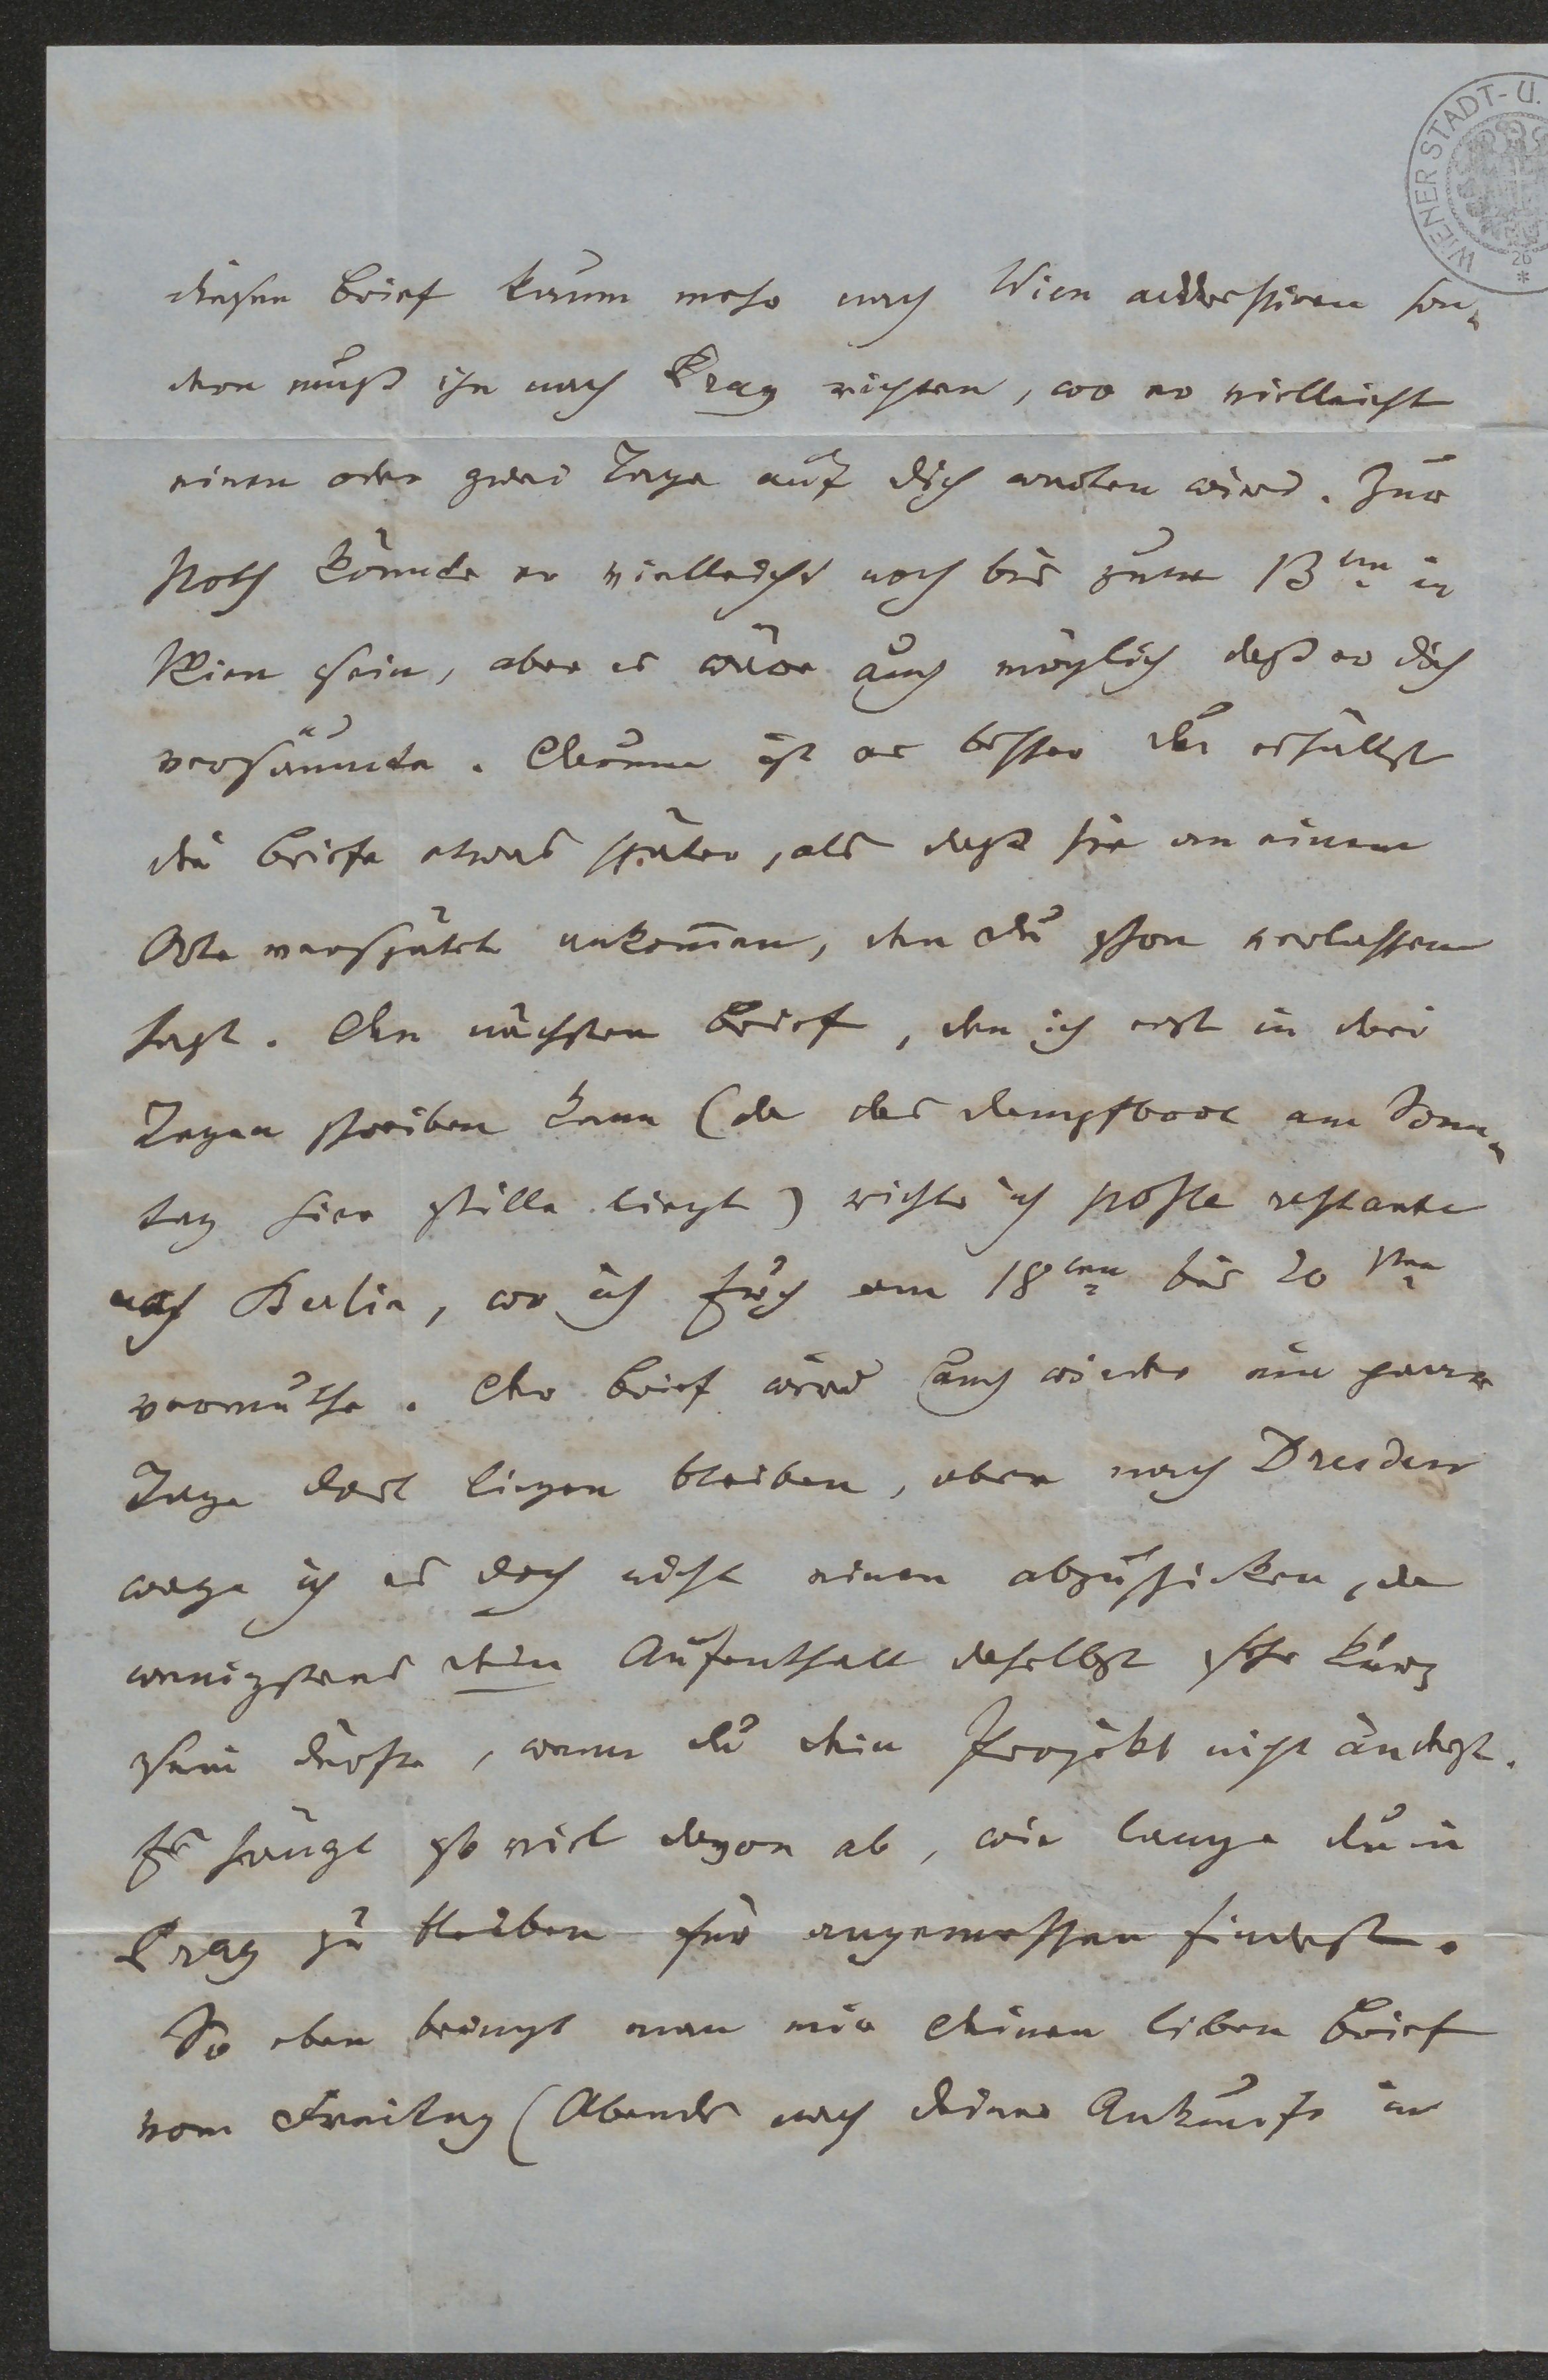 WIENER STADT- U.
26
*
diesen Brief kaum mehr nach Wien addressiren son-
dern muß ihn nach Prag richten, wo er vielleicht
einen oder zwei Tage auf dich warten wird. Zur
Noth könnte er vielleicht noch bis zum 13ten in
Wien sein, aber es wäre auch möglich daß er dich
versäumte. Darum ist es besser du erhältst
die Briefe etwas später, als daß sie an einem
Orte verspätet ankommen, den du schon verlassen
hast. Den nächsten Brief, den ich erst in drei
Tagen schreiben kann (da das Dampfboot am Sonn-
tag hier stille liegt) richte ich poste restante
nach Berlin, wo ich Euch am 18ten bis 20sten
vermuthe. Der Brief wird auch wieder ein paar
Tage dort liegen bleiben, aber nach Dresden
wage ich es doch nicht einen abzuschicken, da
wenigstens dein Aufenthalt daselbst sehr kurz
sein dürfte, wenn du dein Projekt nicht änderst.
Es hängt so viel davon ab, wie lange du in
Prag zu bleiben für angemessen findest.
So eben bringt man mir deinen lieben Brief
vom Freitag (Abends nach deiner Ankunft in